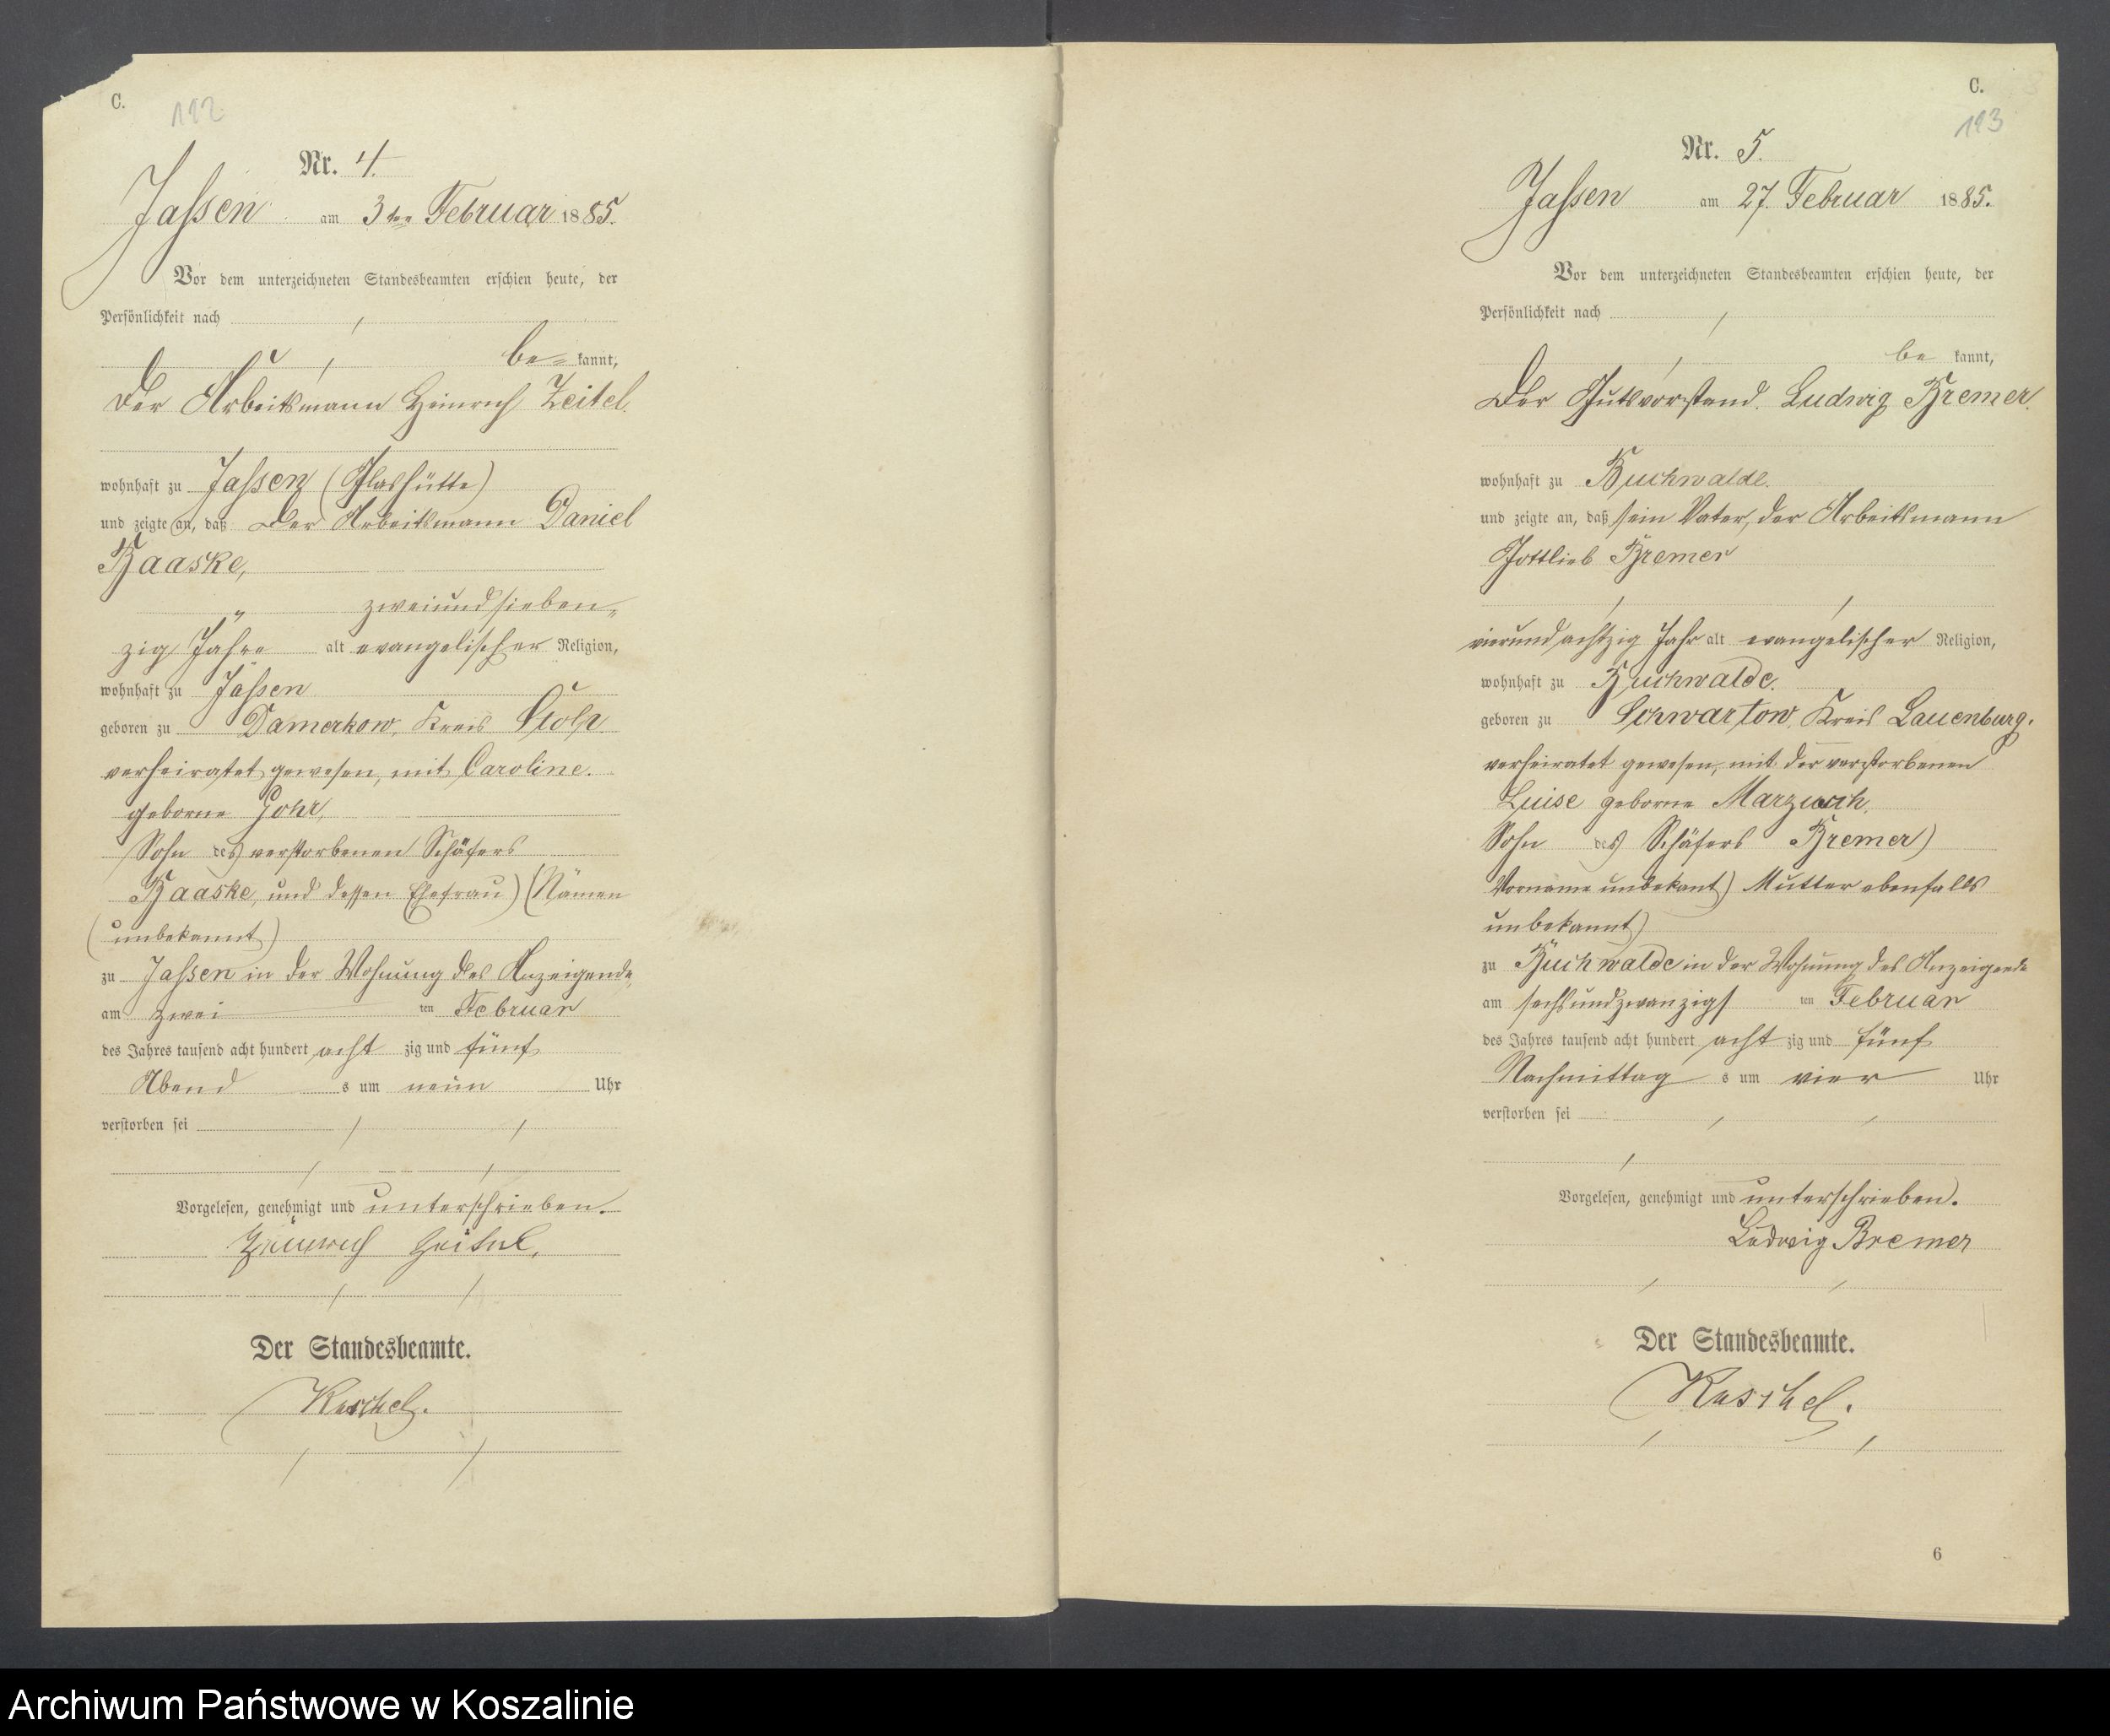 C.
122
Nr. 4.
Jassen am 3ten Februar 1885.
Vor dem unterzeichneten Standesbeamten erschien heute, der
Persönlichkeit nach
be= kannt,
der Arbeitsmann Heinrich Zeitel.
wohnhaft zu Jassen (Glashütte)
und zeigte an, daß der Arbeitsmann Daniel
Baaske,
zweiundsieben=
zig Jahre alt evangelischer Religion,
wohnhaft zu Jassen
geboren zu Damerkow, Kreis Stolp
verheiratet gewesen, mit Caroline.
geborne Gohr,
Sohn des verstorbenen Schäfers
Baaske, und dessen Ehefrau) (Námen
(unbekannt)
zu Jassen in der Wohnung des Anzeigende,
am zwei ten Februar
des Jahres tausend acht hundert acht zig und fünf
Abend s um neun Uhr
verstorben sei
Vorgelesen, genehmigt und unterschrieben.
Heinrich Zeitel,
Der Standesbeamte.
Kaschel.
C.
123
Nr. 5.
Jassen am 27. Februar 1885.
Vor dem unterzeichneten Standesbeamten erschien heute, der
Persönlichkeit nach
be kannt,
der Gutsvorstand. Ludwig Bremer.
wohnhaft zu Buchwalde.
und zeigte an, daß sein Vater, der Arbeitsmann
Gottlieb Bremer
vierundachtzig Jahr alt evangelischer Religion,
wohnhaft zu Buchwalde.
geboren zu Schwartow, Kreis Lauenburg.
verheiratet gewesen, mit der verstorbenen
Luise geborne
Sohn des Schäfers Bremer)
Vorname unbekant) Mutter ebenfalls
unbekannt)
zu Buchwalde in der Wohnung des Anzeigende
am sechsundzwanzigs ten Februar
des Jahres tausend acht hundert acht zig und fünf
Nachmittag s um vier Uhr
verstorben sei
Vorgelesen, genehmigt und unterschrieben.
Ludwig Bremer
Der Standesbeamte.
Kaschel.
6
Archiwum Państwowe w Koszalinie